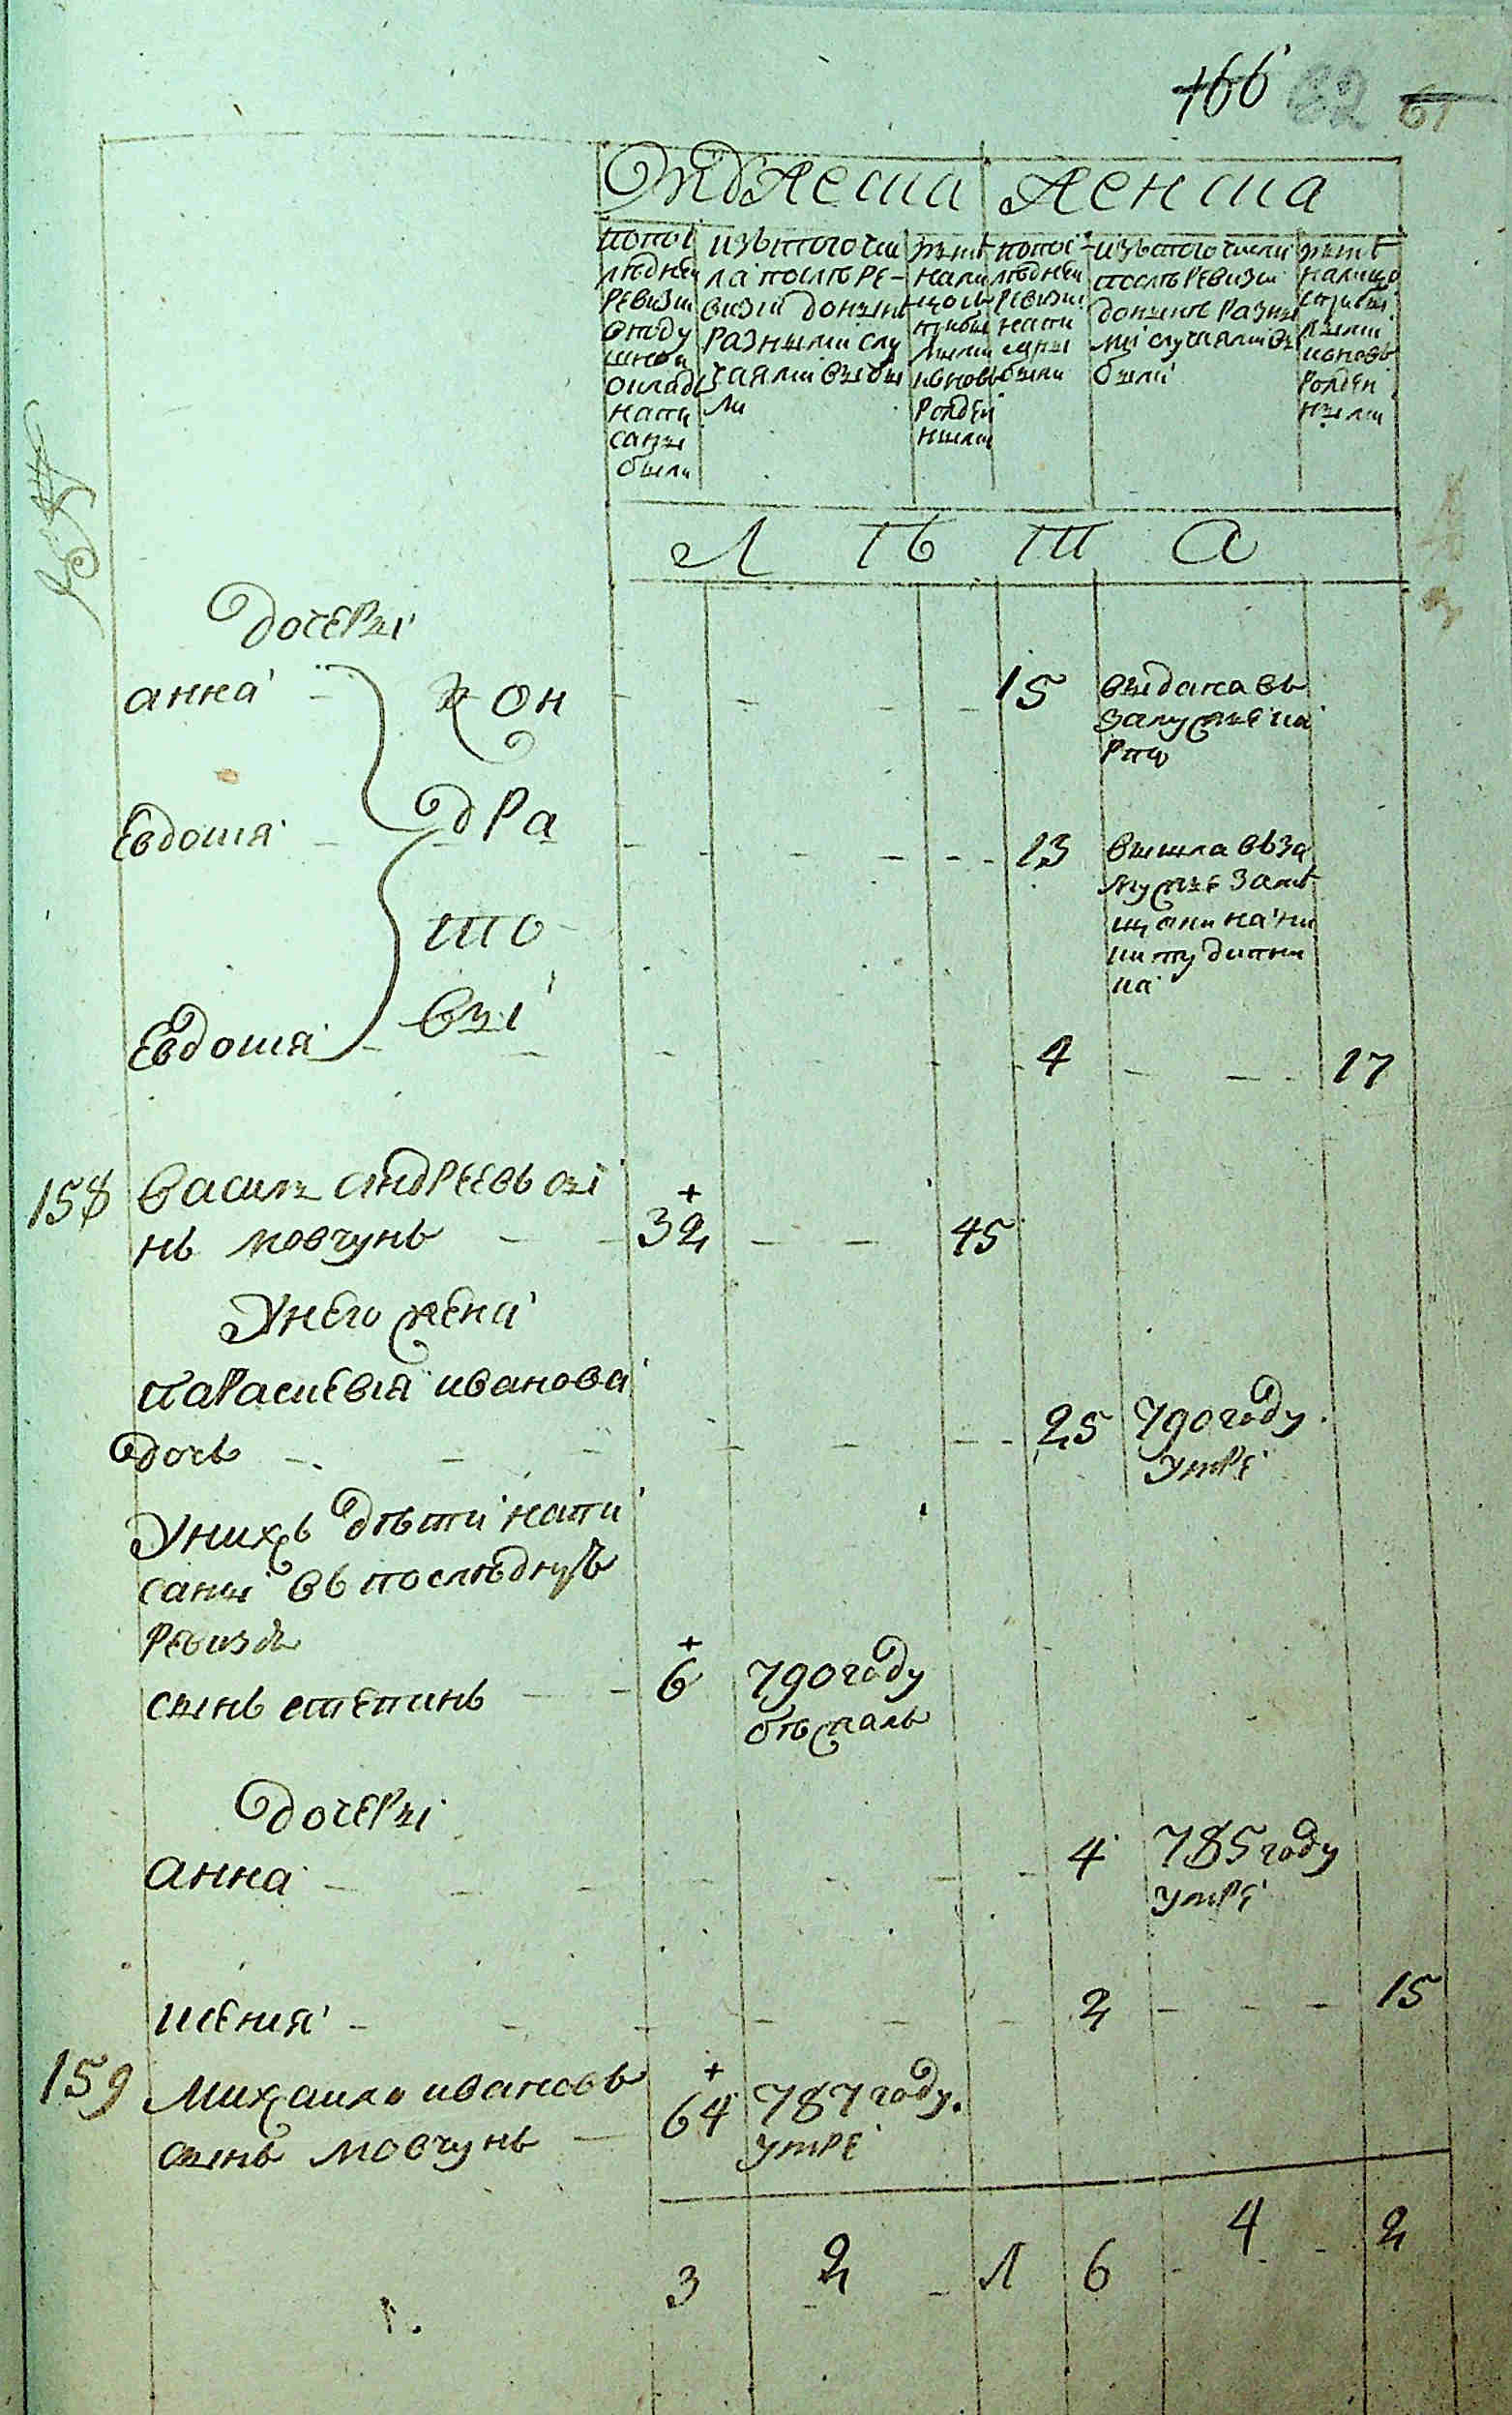 166 82 61
Мужеска Женска
по последней ревизии в подушной оклад написаны были
изъ того числа после ревизии до ныне разными случаями выбыли
ныне на лицо съ прибылыми и вновь рожденными
по последней ревизии написаны были
изъ того числа после ревизии до ныне разными случаями выбыли
ныне на лицо с прибылыми и вновь рожденными
Л Ѣ Т А
дочеры
анна Кон 15 выдана въ
замужье на
дра
Евдокия 13 вышла въ за
мужье за мѣ
щанина ни
то
вы
Евдокия 4 17
158 Василь андреевъ сы
нъ мовчунъ 32 45
У него жена
Параскевия иванова
дочь 25 790 году
умре
У нихъ дѣти напи
саны въ последную
ревизию
сынъ степанъ 6 790 году
бѣжалъ
дочеры
анна 4 785 году
умре
ксения 2 15
159 Михаило ивановъ
сынъ мовчунъ 64 787 году
умре
3 2 1 6 4 2